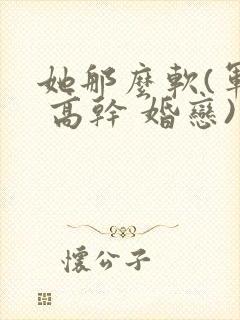 她那麼軟(軍
高幹 婚戀)
懷公子